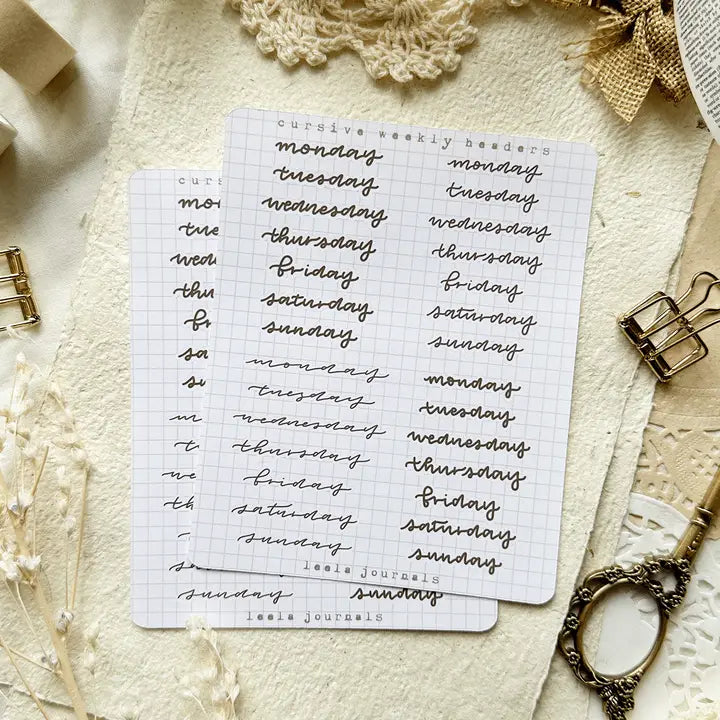 cursive weekly headers
monday
tuesday
wednesday
thursday
friday
saturday
sunday
monday
tuesday
wednesday
thursday
friday
saturday
sunday
monday
tuesday
wednesday
thursday
friday
saturday
sunday
monday
tuesday
wednesday
thursday
friday
saturday
sunday
leela journals
sunday
sunday
leela journals